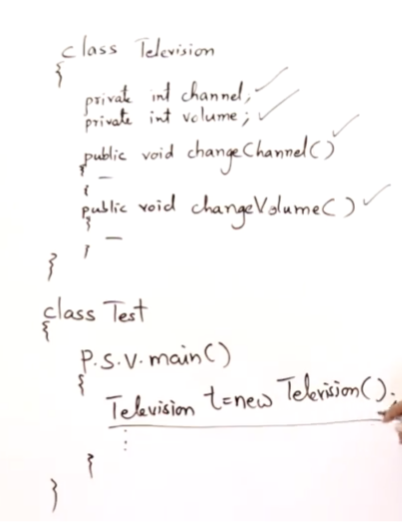 class Television
{
private int channel;
private int volume;
public void changeChannel()
{
—
}
public void changeVolume()
{
—
}
}
class Test
{
P.S.V. main()
{
Television t=new Television();
:
}
}